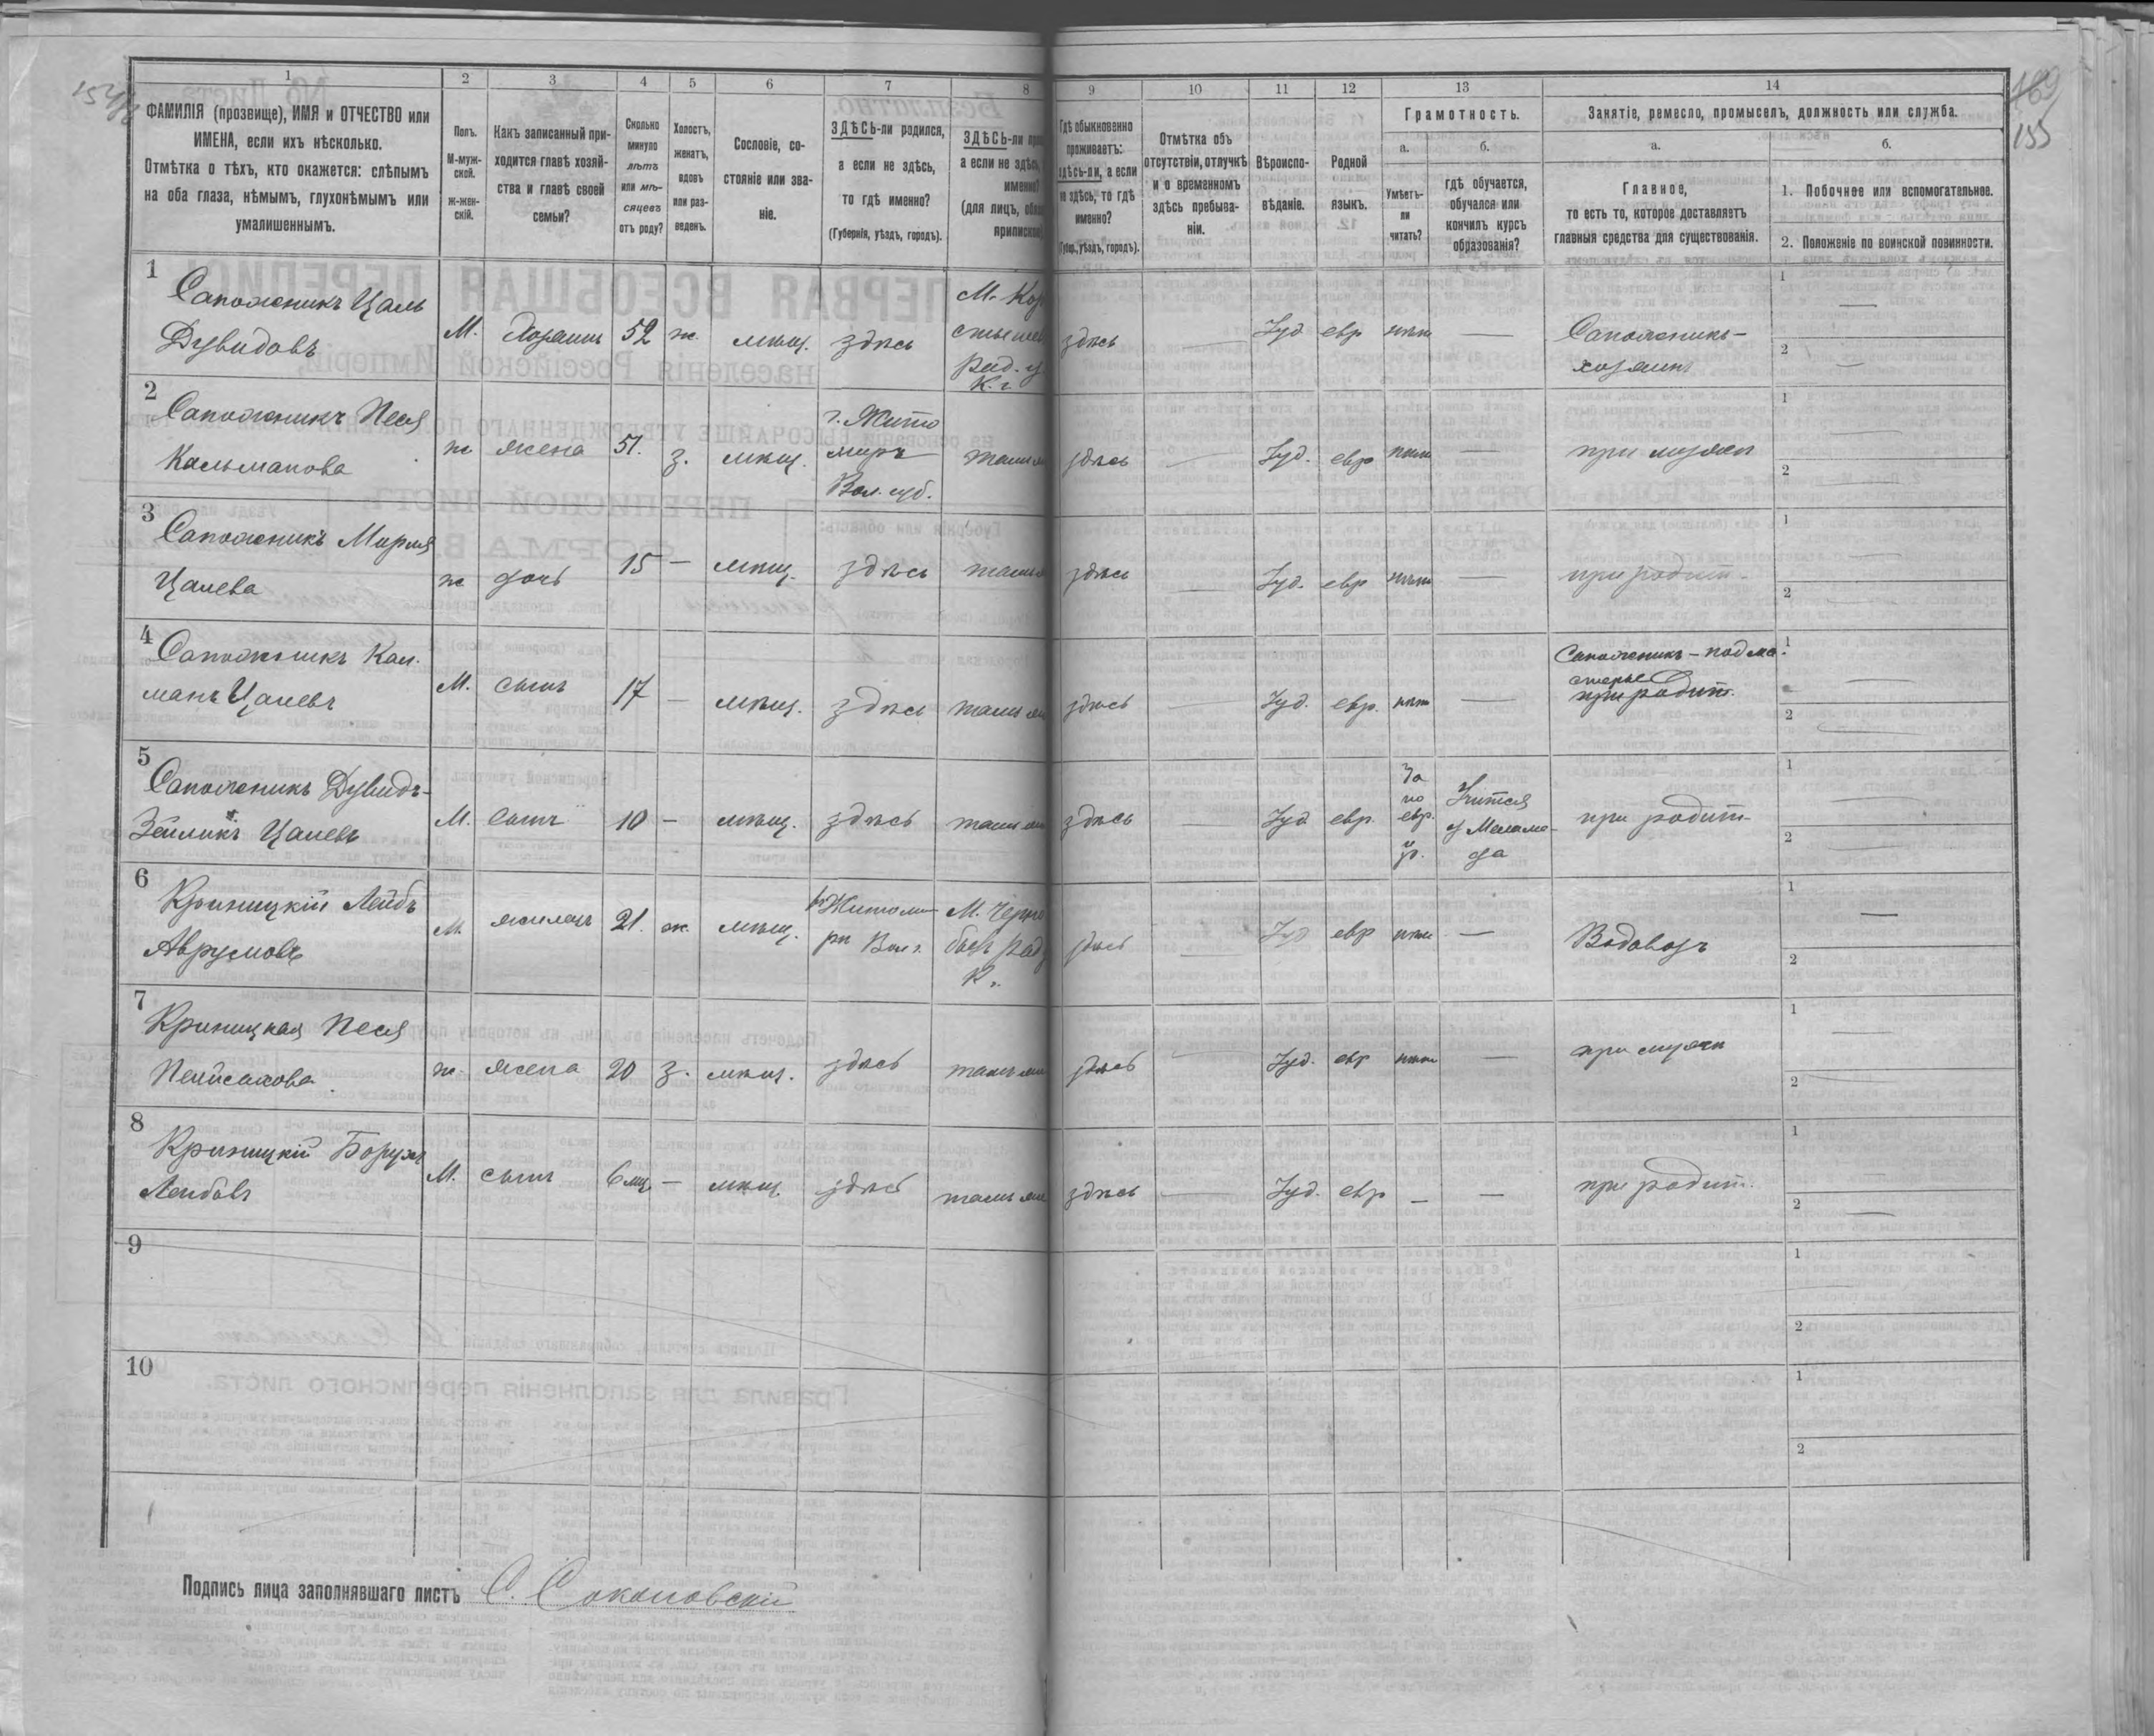 1 2 3 4 5 6 7 8 9 10 11 12 13 14
ФАМИЛІЯ (прозвище), ИМЯ и ОТЧЕСТВО или
ИМЕНА, если ихъ нѣсколько.
Отмѣтка о тѣхъ, кто окажется: слѣпымъ
на оба глаза, нѣмымъ, глухонѣмымъ или
умалишеннымъ.
Полъ.
М-муж-
ской.
Ж-жен-
скій.
Какъ записанный при-
ходится главѣ хозяй-
ства и главѣ своей
семьи?
Сколько
минуло
лѣтъ
или мѣ-
сяцевъ
отъ роду?
Холостъ,
женатъ,
вдовъ
или раз-
веденъ.
Сословіе, со-
стояніе или зва-
ніе.
ЗДѢСЬ-ли родился,
а если не здѣсь,
то гдѣ именно?
(Губернія, уѣздъ, городъ).
ЗДѢСЬ-ли
а если не здѣсь,
именно?
(для лицъ,
Гдѣ обыкновенно
проживаетъ:
здѣсь-ли, а если
не здѣсь, то гдѣ
именно?
(Губ., уѣздъ, городъ).
Отмѣтка объ
отсутствіи, отлучкѣ
и о временномъ
здѣсь пребыва-
ніи.
Вѣроиспо-
вѣданіе.
Родной
языкъ.
Грамотность.
а.
Умѣетъ-
ли
читать?
б.
гдѣ обучается,
обучался или
кончилъ курсъ
образованія?
Занятіе, ремесло, промыселъ, должность или служба.
а.
Главное,
то есть то, которое доставляетъ
главныя средства для существованія.
б.
1. Побочное или вспомогательное.
2. Положеніе по воинской повинности.
155
1
Сапожникъ Цаль
Дувидовъ
М. хозяинъ 52 ж. мѣщ. здѣсь
здѣсь — Іуд. евр нѣт —
Сапожникъ-
хозяинъ
1 —
2 —
2
Сапожникъ Песя
Кальманова
ж жена 51. з. мѣщ.
г. Жито
миръ
Вол. губ.
здѣсь — Іуд. евр нѣт — при мужѣ
1 —
2 —
3
Сапожникъ Мирля
Цалева
ж дочь 15 — мѣщ. здѣсь
здѣсь — Іуд. евр нѣт — при родит.
1 —
2 —
4
Сапожникъ Кал-
манъ Цалевъ
М. сынъ 17 — мѣщ. здѣсь
здѣсь — Іуд. евр. нѣт —
Сапожникъ - подма-
стерье
при родит.
1 —
2 —
5
Сапожникъ Дувидъ-
Зейликъ Цалевъ
М. сынъ 10 — мѣщ. здѣсь
здѣсь — Іуд. евр.
Да
по
евр.
Учится
у Меламе-
да
при родит.
1 —
2 —
6
Криницкій Лейбъ
Аврумовъ
М. жилецъ 21. ж. мѣщ.
г. Житоми-
рѣ Вол. г.
здѣсь — Іуд евр нѣт — Водовозъ
1 —
2 —
7
Криницкая Песя
Пейсахова
ж. жена 20 з. мѣщ. здѣсь
здѣсь — Іуд. евр нѣт — при мужѣ
1 —
2 —
8
Криницкій Борухъ
Лейбовъ
М. сынъ 6 мц — мѣщ. здѣсь
здѣсь — Іуд. евр — — при родит.
1 —
2 —
9
1
2
10
1
2
Подпись лица заполнявшаго листъ С. Соколовскій